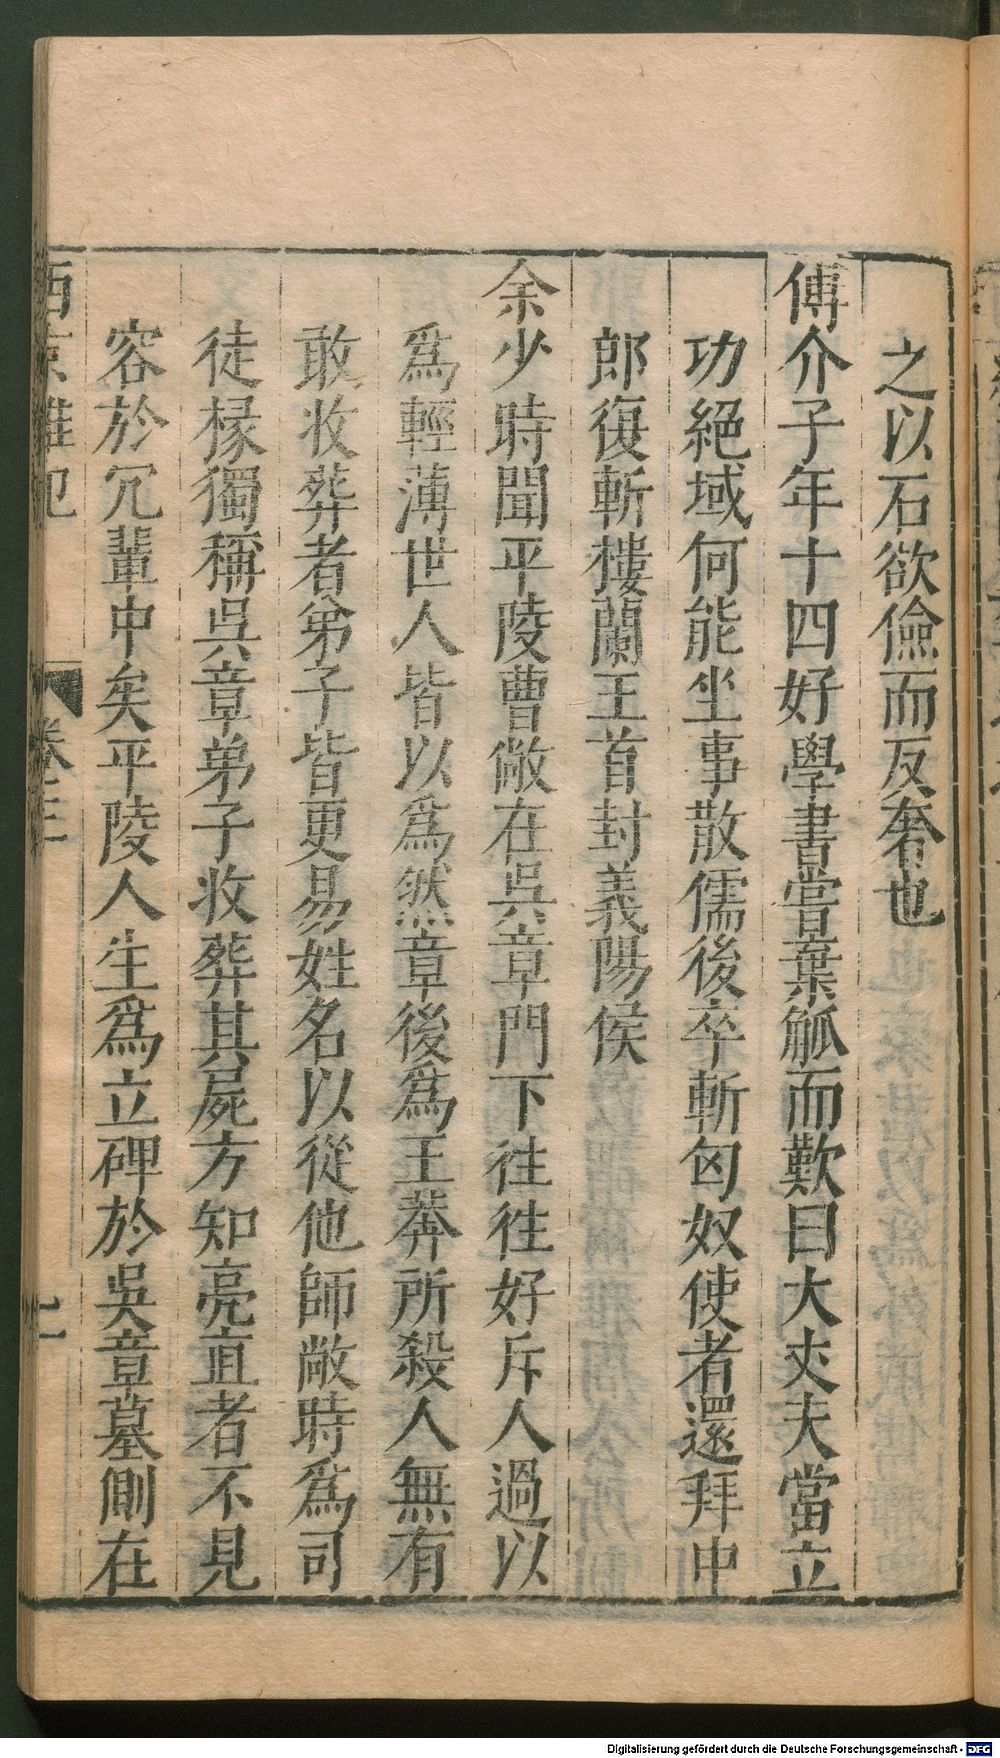 之以石欲儉而反奢也
傅介子年十四好學書嘗棄觚而歎曰大𠀋夫當立
功絕域何能坐事散儒後卒斬匈奴使者還拜中
郎復斬樓蘭王首封義陽侯
余少時聞平陵曹敞在吳章門下往往好斥人過以
爲輕薄世人皆以爲然章後爲王莽所殺人無有
敢收葬者弟子皆更易姓名以從他師敞時爲司
徒椽獨稱吳章弟子收葬其屍方知亮直者不見
容於冗輩中矣平陵人生爲立碑於吳章墓側在
西京雜記
卷三
Digitalisierung gefördert durch die Deutsche Forschungsgemeinschaft - DFG